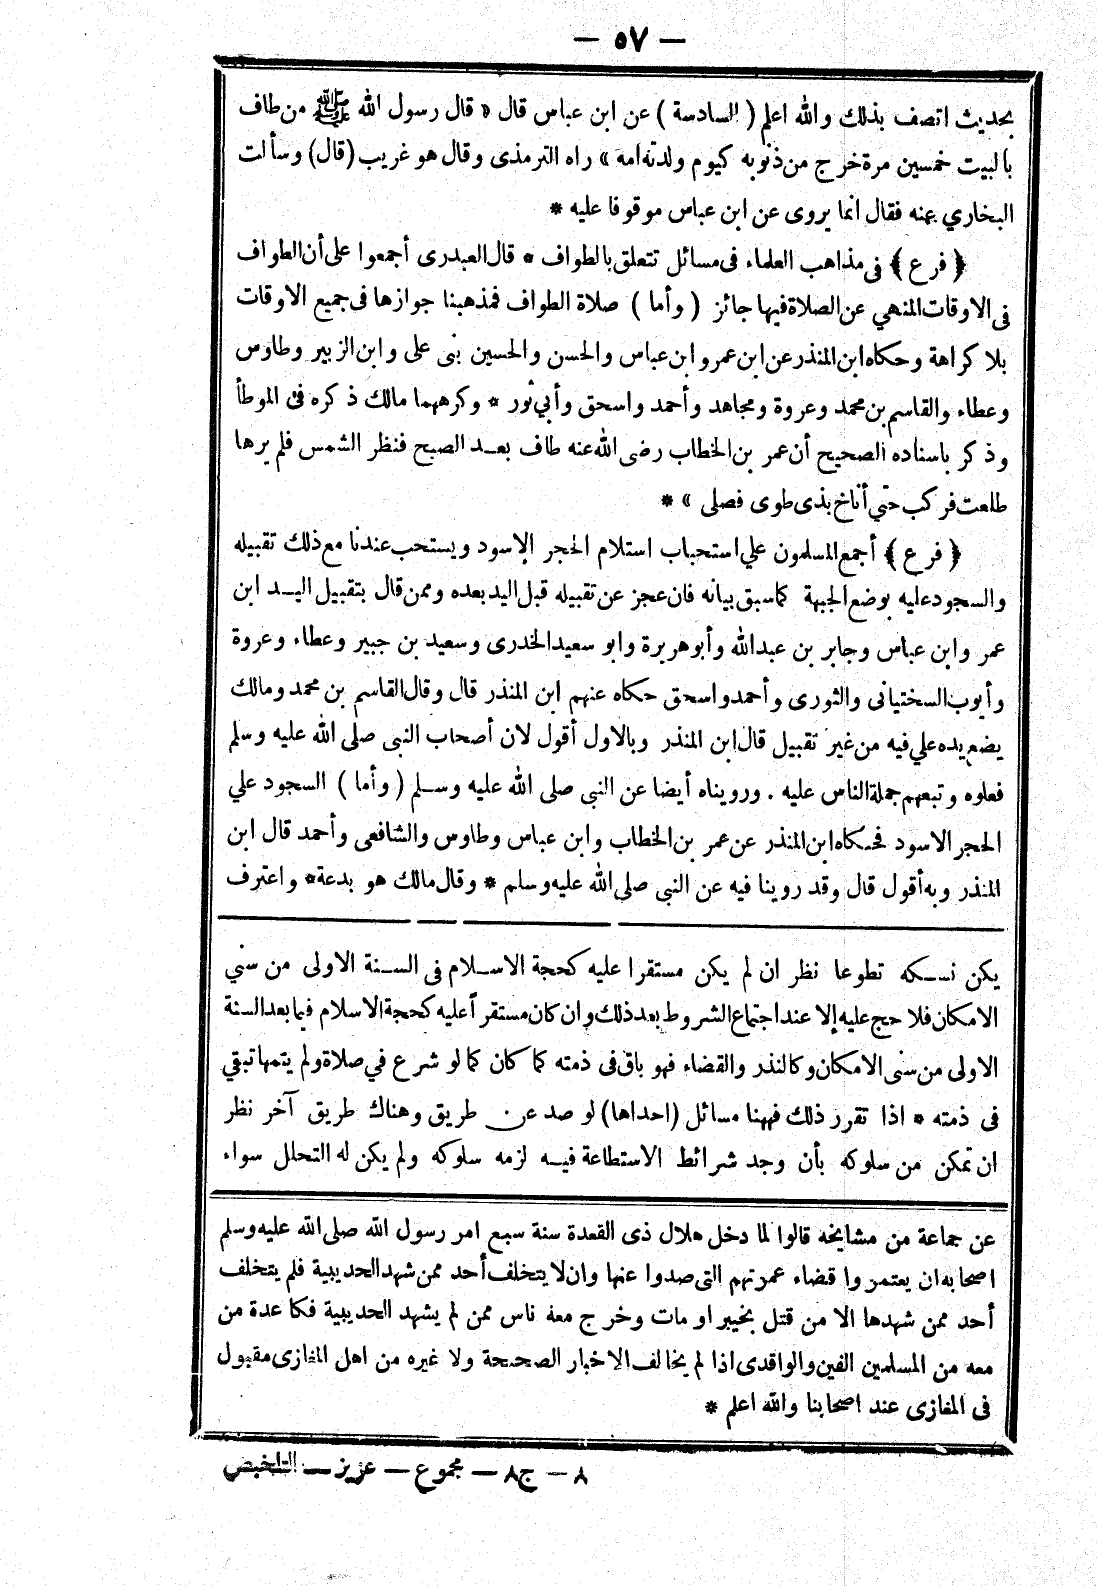 — ٥٧ —
بحديث اتصف بذلك والله اعلم ( السادسة ) عن ابن عباس قال « قال رسول الله ﷺ من طاف
بالبيت خمسين مرة خرج من ذنوبه كيوم ولدته امه » راه الترمذى وقال هو غريب (قال) وسألت
البخاري عنه فقال انما يروى عن ابن عباس موقوفا عليه *
﴿ فرع ﴾ فى مذاهب العلماء فى مسائل تتعلق بالطواف * قال العبدرى أجمعوا على أن الطواف
فى الاوقات المنهي عن الصلاة فيها جائز ( وأما ) صلاة الطواف فمذهبنا جوازها فى جميع الاوقات
بلا كراهة وحكاه ابن المنذر عن ابن عمر وابن عباس والحسن والحسين بنى على وابن الزبير وطاوس
وعطاء والقاسم بن محمد وعروة ومجاهد وأحمد واسحق وأبي ثور * وكرهها مالك ذكره فى الموطأ
وذكر باسناده الصحيح أن عمر بن الخطاب رضى الله عنه طاف بعد الصبح فنظر الشمس فلم يرها
طلعت فركب حتي أناخ بذى طوى فصلى » *
﴿ فرع ﴾ أجمع المسلمون علي استحباب استلام الحجر الاسود ويستحب عندنا مع ذلك تقبيله
والسجود عليه بوضع الجبهة كما سبق بيانه فان عجز عن تقبيله قبل اليد بعده وممن قال بتقبيل اليد ابن
عمر وابن عباس وجابر بن عبد الله وأبو هريرة وابو سعيد الخدرى وسعيد بن جبير وعطاء وعروة
وأيوب السختيانى والثورى وأحمد واسحق حكاه عنهم ابن المنذر قال وقال القاسم بن محمد ومالك
يضع يده علي فيه من غير تقبيل قال ابن المنذر وبالاول أقول لان أصحاب النبى صلى الله عليه وسلم
فعلوه وتبعهم جملة الناس عليه . ورويناه أيضا عن النبى صلى الله عليه وسلم ( وأما ) السجود علي
الحجر الاسود فحكاه ابن المنذر عن عمر بن الخطاب وابن عباس وطاوس والشافعى وأحمد قال ابن
المنذر وبه أقول قال وقد روينا فيه عن النبى صلى الله عليه وسلم * وقال مالك هو بدعة * واعترف
يكن نسكه تطوعا نظر ان لم يكن مستقرا عليه كحجة الاسلام فى السنة الاولى من سني
الامكان فلا حج عليه إلا عند اجتماع الشروط بعد ذلك وان كان مستقرا عليه كحجة الاسلام فيما بعد السنة
الاولى من سنى الامكان وكالنذر والقضاء فهو باق فى ذمته كما كان كما لو شرع في صلاة ولم يتمها تبقي
فى ذمته * اذا تقرر ذلك فههنا مسائل (احداها) لو صد عن طريق وهناك طريق آخر نظر
ان تمكن من سلوكه بأن وجد شرائط الاستطاعة فيه لزمه سلوكه ولم يكن له التحلل سواء
عن جماعة من مشايخه قالوا لما دخل هلال ذى القعدة سنة سبع امر رسول الله صلى الله عليه وسلم
اصحابه ان يعتمروا قضاء عمرتهم التى صدوا عنها وان لا يتخلف أحد ممن شهد الحديبية فلم يتخلف
أحد ممن شهدها الا من قتل بخيبر او مات وخرج معه ناس ممن لم يشهد الحديبية فكا عدة من
معه من المسلمين الفين والواقدى اذا لم يخالف الاخبار الصحيحة ولا غيره من اهل المغازى مقبول
فى المغازى عند اصحابنا والله اعلم *
٨ — ج٨ — مجموع — عزيز — التلخيص